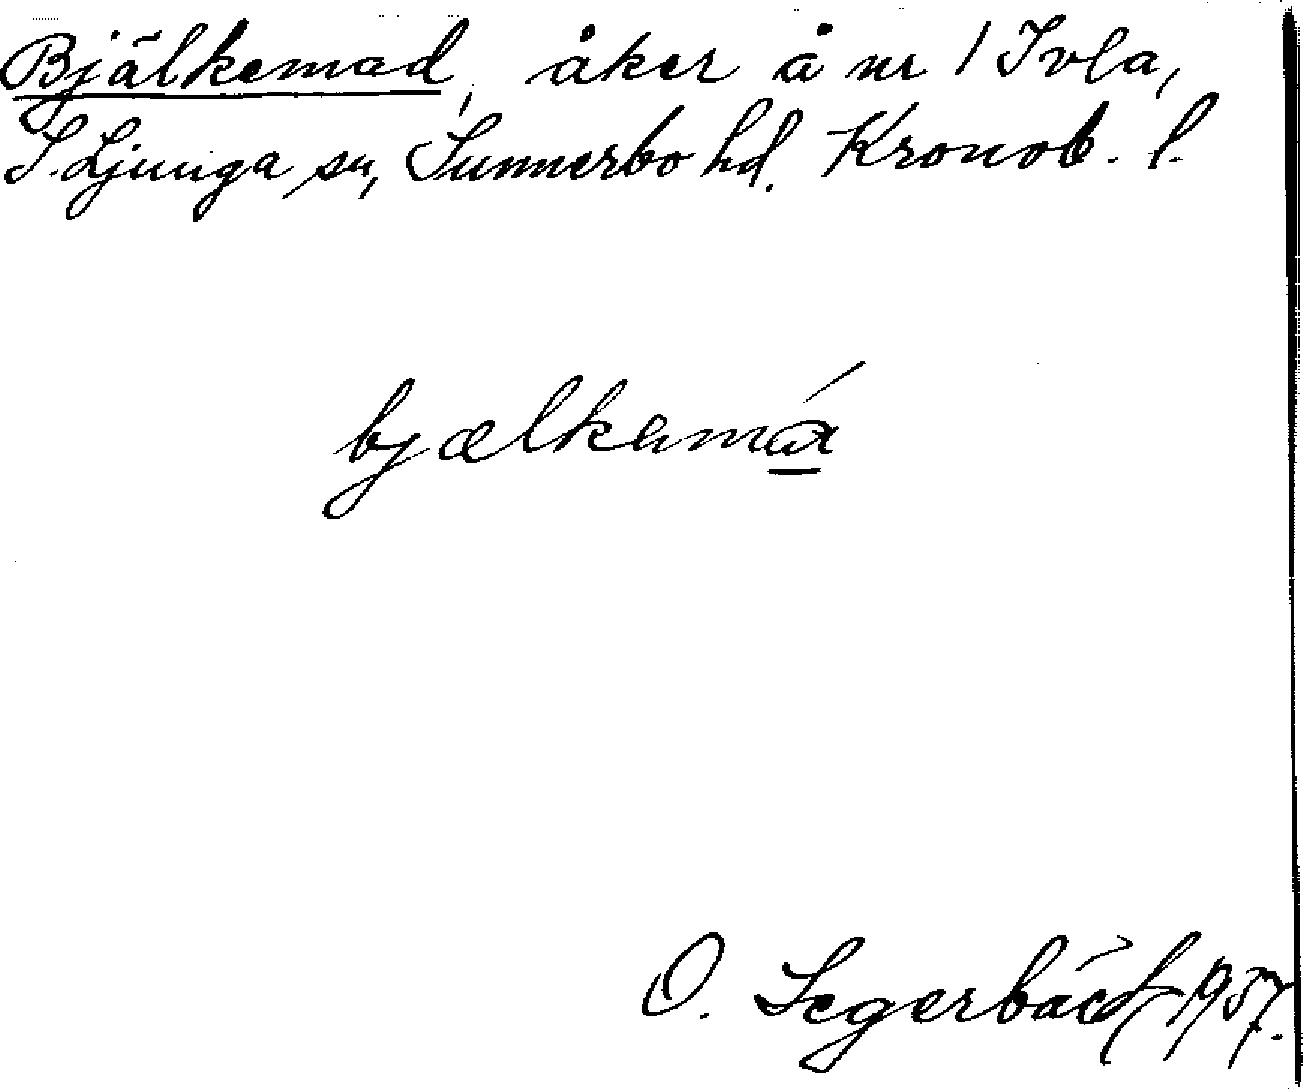 Bjälkemad, åker å nr 1 Ivla,
S. Ljunga sn, Sunnerbo hd. Kronob. l.
bjælkemá
O. Segerbäck 1957.